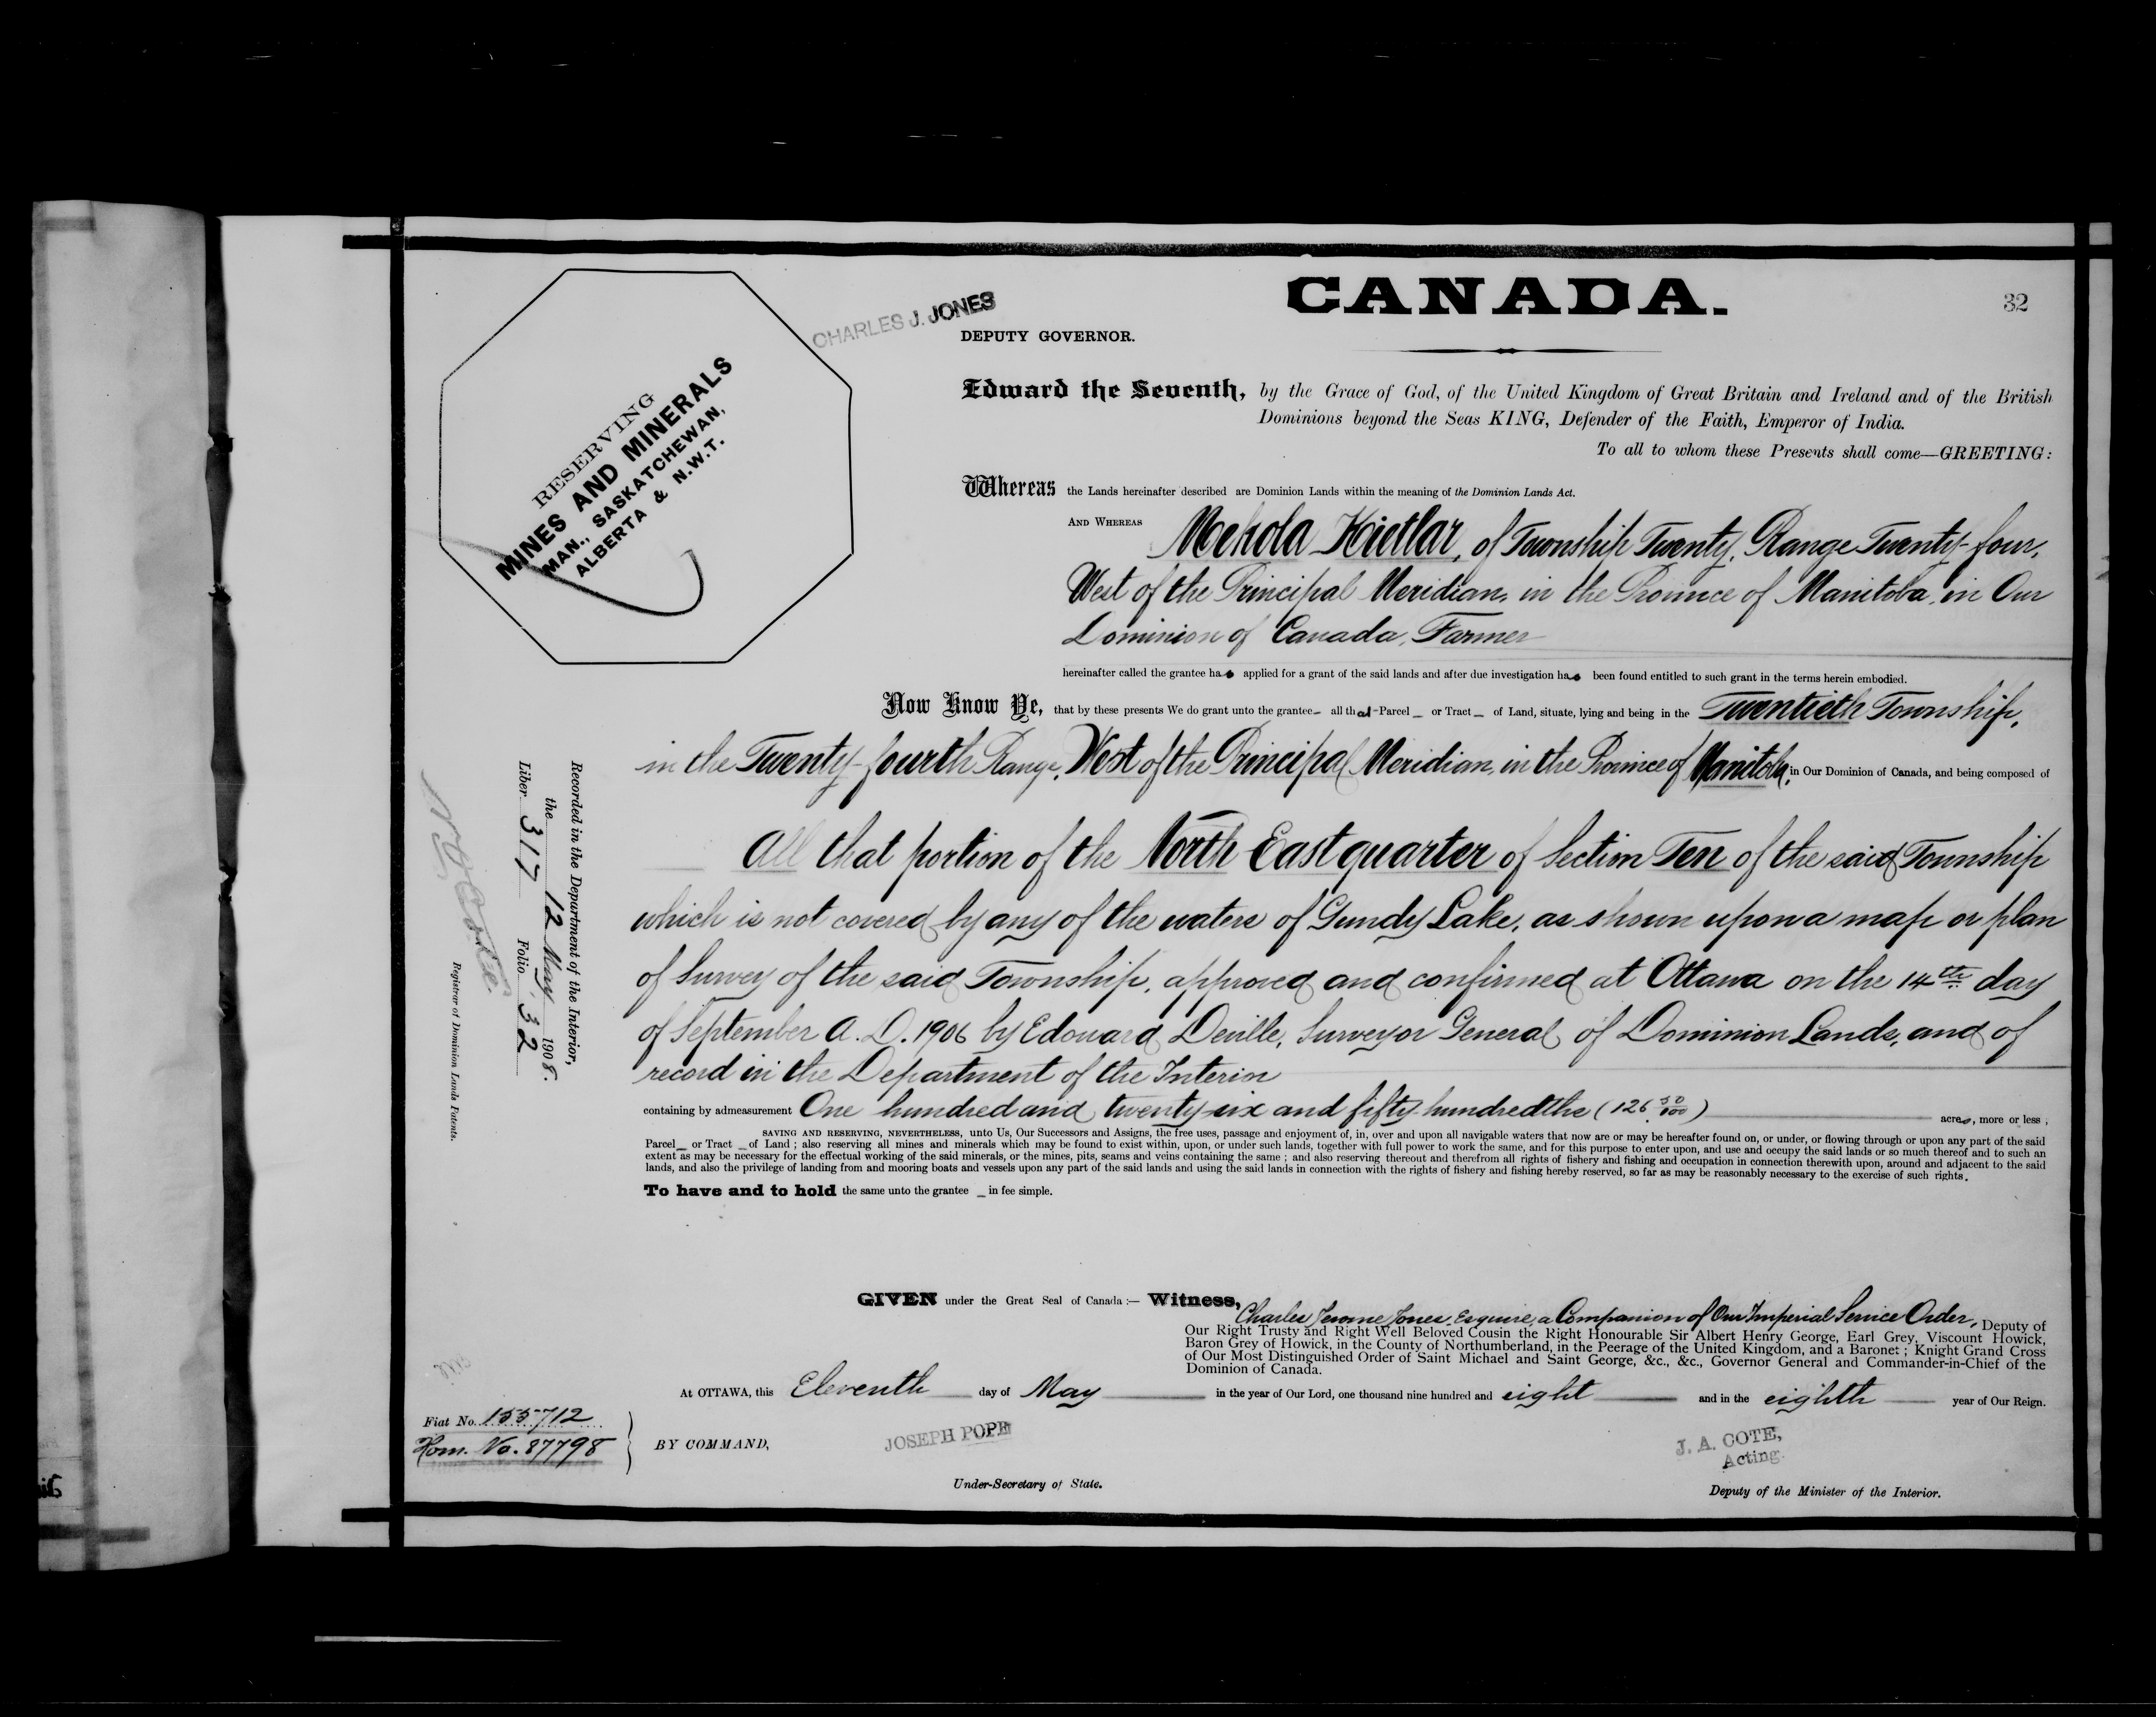 CANADA.
32
CHARLES J. JONES
DEPUTY GOVERNOR.
RESERVING
MINES AND MINERALS
MAN., SASKATCHEWAN,
ALBERTA & N.W.T.
Edward the Seventh, by the Grace of God, of the United Kingdom of Great Britain and Ireland and of the British
Dominions beyond the Seas KING, Defender of the Faith, Emperor of India.
To all to whom these Presents shall come—GREETING:
Whereas the Lands hereinafter described are Dominion Lands within the meaning of the Dominion Lands Act.
AND WHEREAS Mekola Kietlar, of Township Twenty, Range Twenty-four,
West of the Principal Meridian, in the Province of Manitoba, in Our
Dominion of Canada, Farmer
hereinafter called the grantee has applied for a grant of the said lands and after due investigation has been found entitled to such grant in the terms herein embodied.
Now Know Ye, that by these presents We do grant unto the grantee all that Parcel or Tract of Land, situate, lying and being in the Twentieth Township,
in the Twenty-fourth Range, West of the Principal Meridian, in the Province of Manitoba, in Our Dominion of Canada, and being composed of
All that portion of the North East quarter of Section Ten of the said Township
which is not covered by any of the waters of Gundy Lake, as shown upon a map or plan
of Survey of the said Township, approved and confirmed at Ottawa on the 14th day
of September A.D. 1906 by Edouard Deville, Surveyor General of Dominion Lands, and of
record in the Department of the Interior
containing by admeasurement One hundred and twenty-six and fifty hundredths (126 50/100) acres, more or less ;
SAVING AND RESERVING, NEVERTHELESS, unto Us, Our Successors and Assigns, the free uses, passage and enjoyment of, in, over and upon all navigable waters that now are or may be hereafter found on, or under, or flowing through or upon any part of the said
Parcel or Tract of Land ; also reserving all mines and minerals which may be found to exist within, upon, or under such lands, together with full power to work the same, and for this purpose to enter upon, and use and occupy the said lands or so much thereof and to such an
extent as may be necessary for the effectual working of the said minerals, or the mines, pits, seams and veins containing the same ; and also reserving thereout and therefrom all rights of fishery and fishing and occupation in connection therewith upon, around and adjacent to the said
lands, and also the privilege of landing from and mooring boats and vessels upon any part of the said lands and using the said lands in connection with the rights of fishery and fishing hereby reserved, so far as may be reasonably necessary to the exercise of such rights.
To have and to hold the same unto the grantee in fee simple.
GIVEN under the Great Seal of Canada :— Witness,
Charles Jerome Jones, Esquire, a Companion of Our Imperial Service Order, Deputy of
Our Right Trusty and Right Well Beloved Cousin the Right Honourable Sir Albert Henry George, Earl Grey, Viscount Howick,
Baron Grey of Howick, in the County of Northumberland, in the Peerage of the United Kingdom, and a Baronet ; Knight Grand Cross
of Our Most Distinguished Order of Saint Michael and Saint George, &c., &c., Governor General and Commander-in-Chief of the
Dominion of Canada.
At OTTAWA, this Eleventh day of May in the year of Our Lord, one thousand nine hundred and eight and in the eighth year of Our Reign.
Fiat No. 155712
Hom. No. 87798
BY COMMAND,
JOSEPH POPE
Under-Secretary of State.
J. A. COTE,
Acting.
Deputy of the Minister of the Interior.
Recorded in the Department of the Interior,
the 12 May 1908.
Liber 317 Folio 32
N O Coté
Registrar of Dominion Lands Patents.